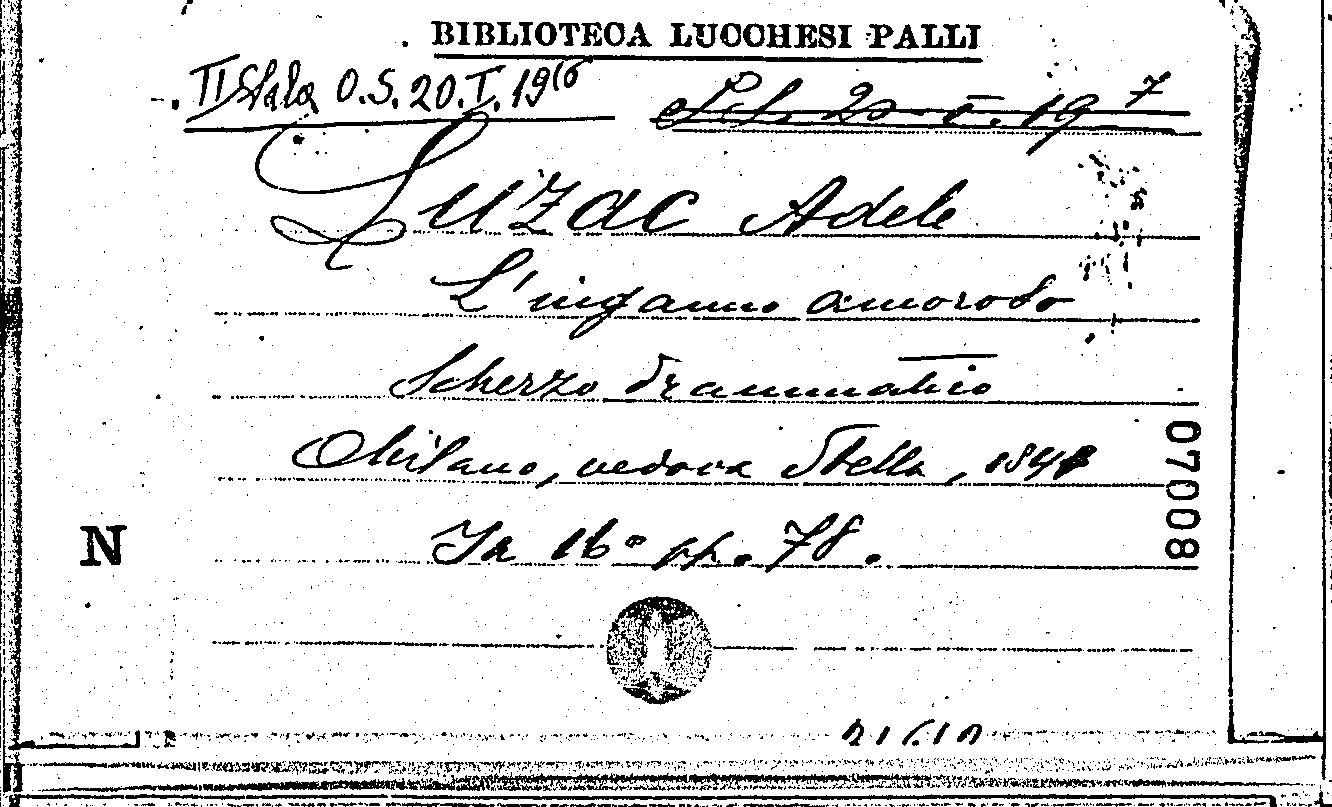 BIBLIOTECA LUCCHESI PALLI
II Sala O.S. 20.I.19(6
20 I. 19 7
Luzac Adele
L'inganno amoroso
Scherzo drammatico
Milano, vedova Stella, 184
In 16° pp. 78.
07008
N